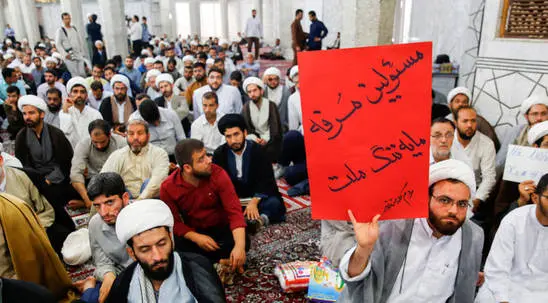 مسئولین مُرَفه
مایه ننگ ملت